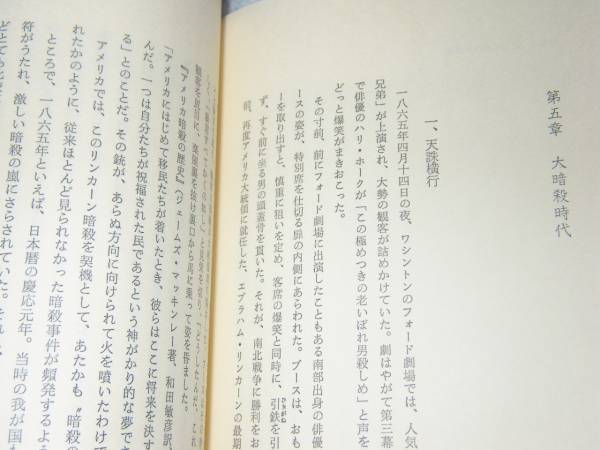 第五章　大暗殺時代
一、天誅横行
一八六五年四月十四日の夜、ワシントンのフォード劇場では、人気
兄弟」が上演され、大勢の観客が詰めかけていた。劇はやがて第三幕
で俳優のハリ・ホークが「この極めつきの老いぼれ男殺しめ」と声を
どっと爆笑がまきおこった。
その寸前、前にフォード劇場に出演したこともある南部出身の俳優
ースの姿が、特別席を仕切る扉の内側にあらわれた。ブースは、おも
ーを取り出すと、慎重に狙いを定め、客席の爆笑と同時に、引鉄を引
ず、すぐ前に坐る男の頭蓋骨を貫いた。それが、南北戦争に勝利をお
前、再度アメリカ大統領に就任した、エブラハム・リンカーンの最期
乗って姿を晦ました。
『アメリカ暗殺の歴史』（ジェームズ・マッキンレー著、和田敏彦訳、
「アメリカにはじめて移民たちが着いたとき、彼らはここに将来を決す
んだ。一つは自分たちが祝福された民であるという神がかり的な夢でさ
る」とのことだ。その銃が、あらぬ方向に向けられて火を噴いたわけで
アメリカでは、このリンカーン暗殺を契機として、あたかも〝暗殺の
れたかのように、従来ほとんど見られなかった暗殺事件が頻発するよう
ところで、一八六五年といえば、日本暦の慶応元年。当時の我が国も
符がうたれ、激しい暗殺の嵐にさらされていた。